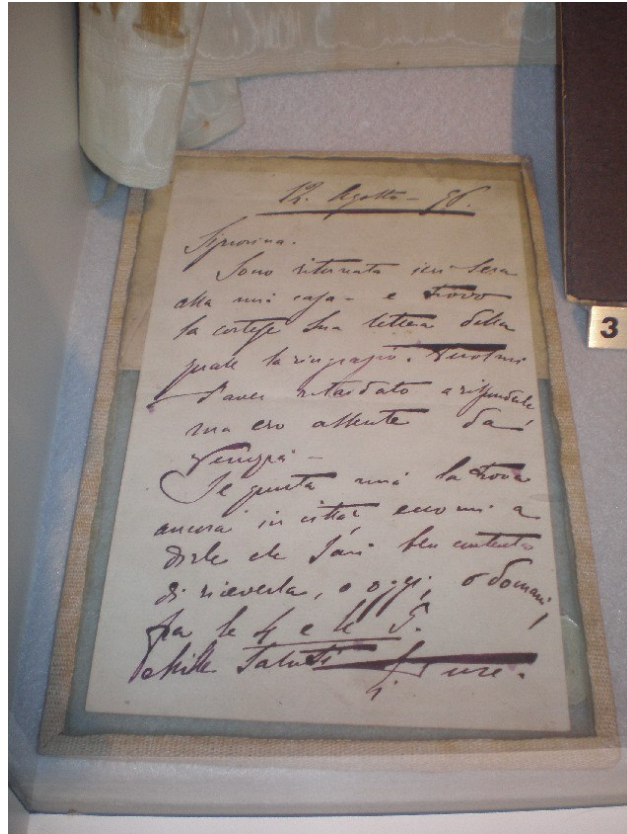 12. Agosto – 96.
Signorina.
Sono ritornata ieri sera
alla mia casa – e trovo
la cortese Sua lettera della
quale la ringrazio.
D'aver ritardato a rispondere
ma ero assente da
Venezia –
Se questa mia la trova
ancora in città eccomi a
dirle che sarò ben contenta
di riceverla, o oggi, o domani,
fra le 4 e le 5.
Mille saluti E. Duse.
3